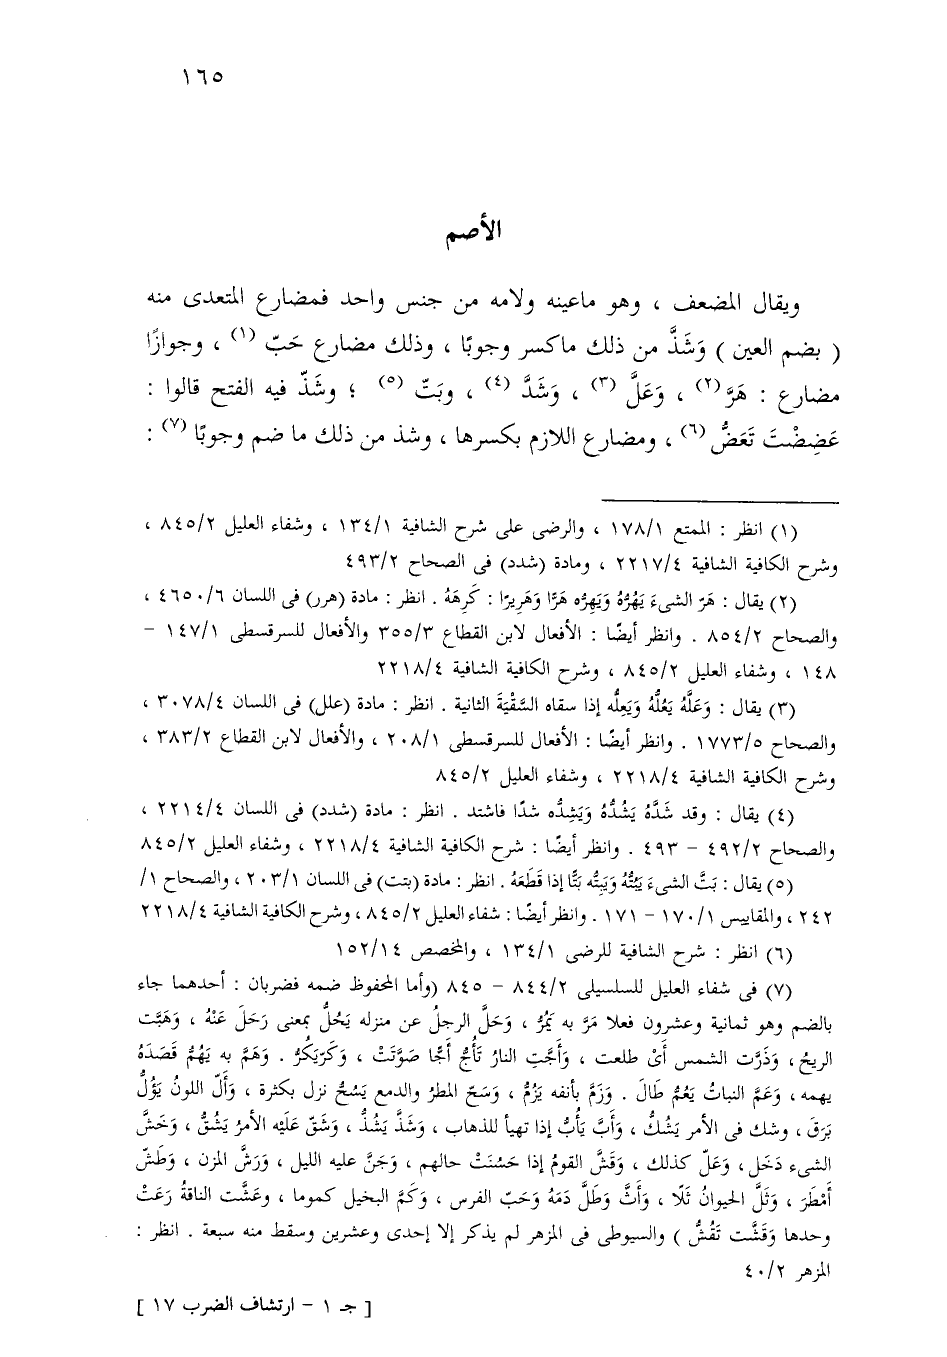 ١٦٥
الأصم
ويقال المضعف ، وهو ماعينه ولامه من جنس واحد فمضارع المتعدى منه
( بضم العين ) وَشَذَّ من ذلك ماكسر وجوبًا ، وذلك مضارع حَبّ (١) ، وجوازًا
مضارع : هَرَّ (٢) ، وَعَلَّ (٣) ، وَشَدَّ (٤) ، وبَتّ (٥) ؛ وشَذّ فيه الفتح قالوا :
عَضِضْتَ تَعَضُّ (٦) ، ومضارع اللازم بكسرها ، وشذ من ذلك ما ضم وجوبًا (٧) :
(١) انظر : الممتع ١٧٨/١ ، والرضى على شرح الشافية ١٣٤/١ ، وشفاء العليل ٨٤٥/٢ ،
وشرح الكافية الشافية ٢٢١٧/٤ ، ومادة (شدد) فى الصحاح ٤٩٣/٢
(٢) يقال : هَرّ الشىءَ يَهُرُّهُ وَيَهِرُّه هَرًّا وَهَرِيرًا : كَرِهَهُ . انظر : مادة (هرر) فى اللسان ٤٦٥٠/٦ ،
والصحاح ٨٥٤/٢ . وانظر أيضًا : الأفعال لابن القطاع ٣٥٥/٣ والأفعال للسرقسطى ١٤٧/١ –
١٤٨ ، وشفاء العليل ٨٤٥/٢ ، وشرح الكافية الشافية ٢٢١٨/٤
(٣) يقال : وَعَلَّهُ يَعُلُّهُ وَيَعِلُّه إذا سقاه السَّقْيَةَ الثانية . انظر : مادة (علل) فى اللسان ٣٠٧٨/٤ ،
والصحاح ١٧٧٣/٥ . وانظر أيضًا : الأفعال للسرقسطى ٢٠٨/١ ، والأفعال لابن القطاع ٣٨٣/٢ ،
وشرح الكافية الشافية ٢٢١٨/٤ ، وشفاء العليل ٨٤٥/٢
(٤) يقال : وقد شَدَّهُ يَشُدُّهُ وَيَشِدُّه شدًّا فاشتد . انظر : مادة (شدد) فى اللسان ٢٢١٤/٤ ،
والصحاح ٤٩٢/٢ – ٤٩٣ . وانظر أيضًا : شرح الكافية الشافية ٢٢١٨/٤ ، وشفاء العليل ٨٤٥/٢
(٥) يقال : بَتَّ الشىءَ يَبُتُّهُ وَيَبِتُّه بَتًّا إذا قَطَعَهُ . انظر : مادة (بتت) فى اللسان ٢٠٣/١ ، والصحاح ١/
٢٤٢ ، والمقاييس ١٧٠/١ – ١٧١ . وانظر أيضًا : شفاء العليل ٨٤٥/٢ ، وشرح الكافية الشافية ٢٢١٨/٤
(٦) انظر : شرح الشافية للرضى ١٣٤/١ ، والمخصص ١٥٢/١٤
(٧) فى شفاء العليل للسلسيلى ٨٤٤/٢ – ٨٤٥ (وأما المحفوظ ضمه فضربان : أحدهما جاء
بالضم وهو ثمانية وعشرون فعلا مَرَّ به يَمُرُّ ، وَحَلَّ الرجلُ عن منزله يَحُلُّ بمعنى رَحَلَ عَنْهُ ، وَهَبَّت
الريحُ ، وَذَرَّت الشمس أَىْ طلعت ، وَأَجَّتِ النارُ تَأُجُّ أَجًّا صَوَّتَتْ ، وَكَرّيَكُرُّ . وَهَمَّ به يَهُمُّ قَصَدَهُ
يهمه ، وَعَمَّ النباتُ يَعُمُّ طَالَ . وَزَمَّ بأنفه يَزُمُّ ، وَسَحّ المطرُ والدمع يَسُحُّ نزل بكثرة ، وَأَلّ اللونُ يَؤُلُّ
بَرَقَ ، وشك فى الأمر يَشُكُّ ، وَأَبَّ يَأُبُّ إذا تهيأ للذهاب ، وَشَذَّ يَشُذُّ ، وَشَقّ عَلَيْه الأمرُ يَشُقُّ ، وَخَشَّ
الشىء دَخَل ، وَغَلّ كذلك ، وَقَشَّ القومُ إذا حَسُنَتْ حالهم ، وَجَنَّ عليه الليل ، وَرَشَّ المزن ، وَطَشّ
أَمْطَرَ ، وَثَلَّ الحيوانُ ثَلًا ، وَأَثَّ وَطَلَّ دَمَهُ وَخَبّ الفرس ، وَكَمَّ البخيل كموما ، وعَسَّت الناقةُ رَعَتْ
وحدها وَقَسَّت تَقُسُّ ) والسيوطى فى المزهر لم يذكر إلا إحدى وعشرين وسقط منه سبعة . انظر :
المزهر ٤٠/٢
[ جـ ١ – ارتشاف الضرب ١٧ ]